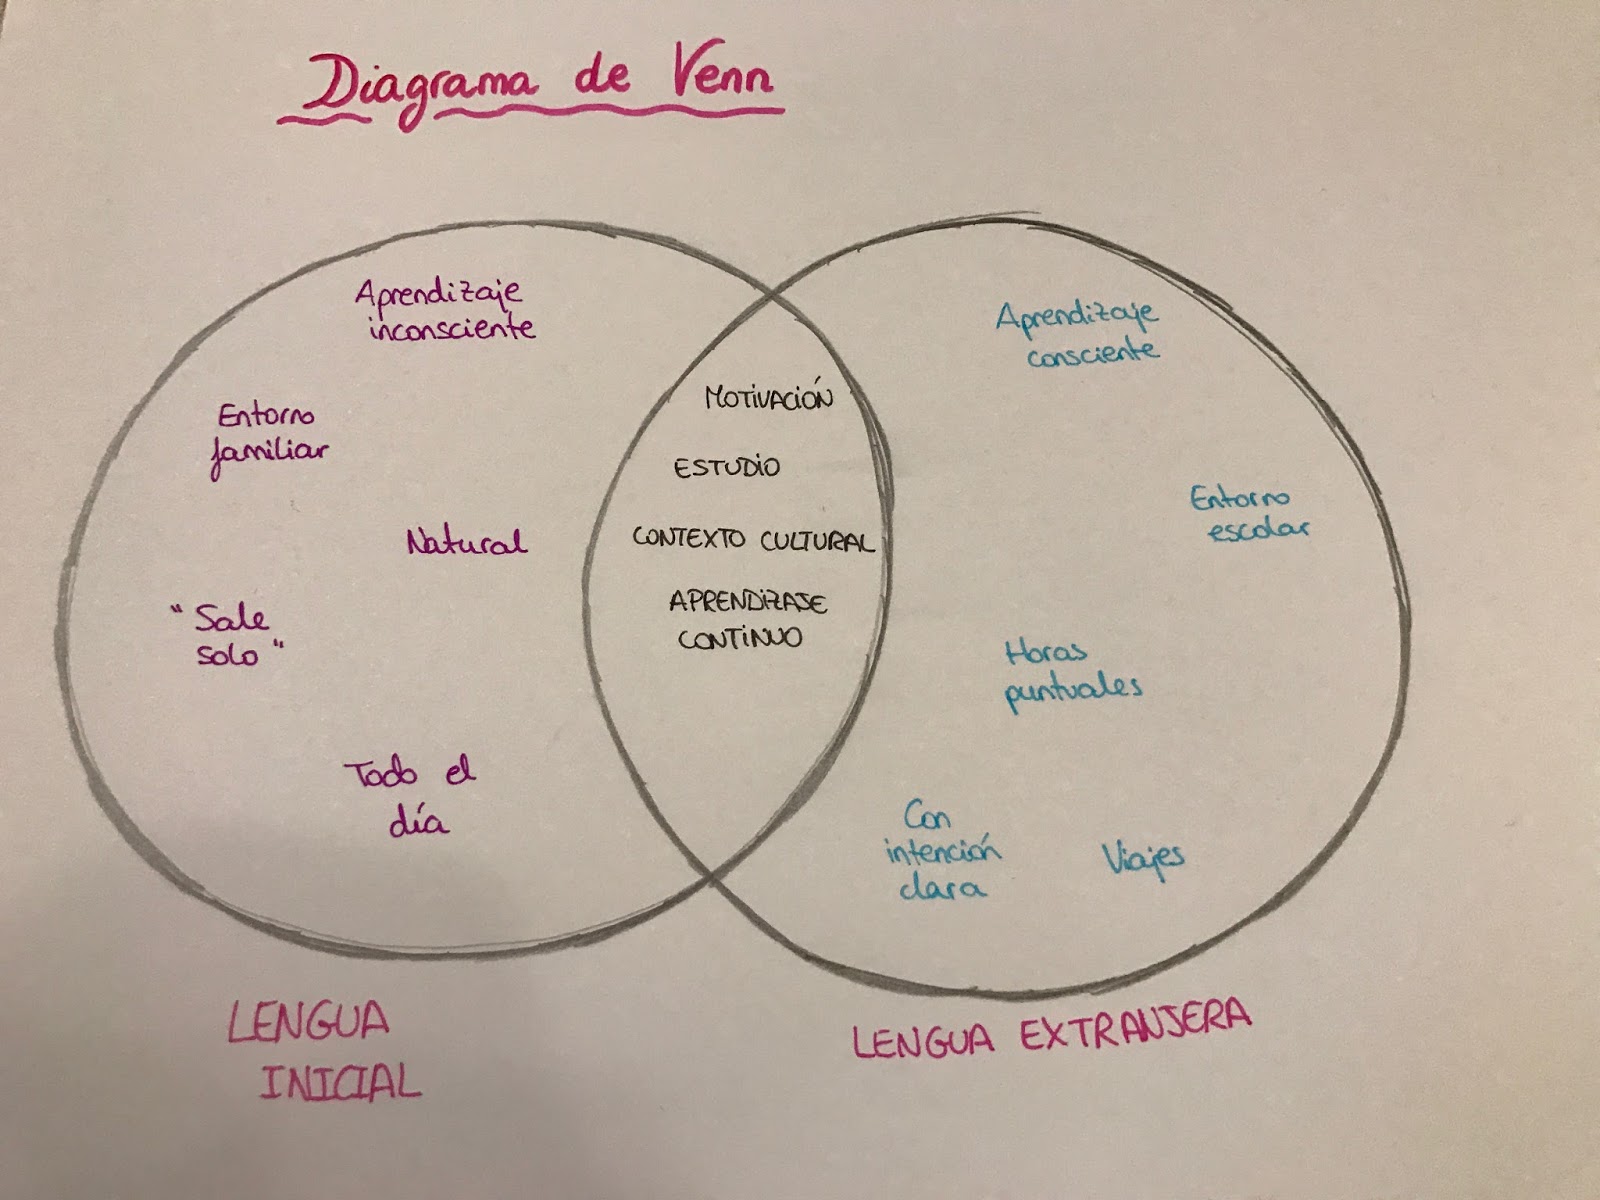 Diagrama de Venn
Aprendizaje
inconsciente
Entorno
familiar
Natural
"Sale
solo"
Todo el
día
MOTIVACIÓN
ESTUDIO
CONTEXTO CULTURAL
APRENDIZAJE
CONTINUO
Aprendizaje
consciente
Entorno
escolar
Horas
puntuales
Con
intención
clara
Viajes
LENGUA
INICIAL
LENGUA EXTRANJERA